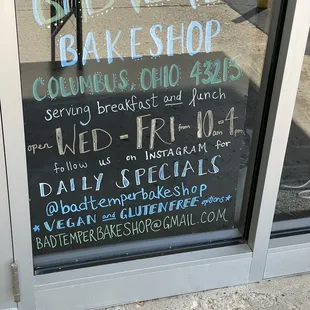 BAKESHOP
COLUMBUS, OHIO 43215
serving breakfast and lunch
open WED - FRI from 10am - 4pm
follow us on INSTAGRAM for
DAILY SPECIALS
@badtemperbakeshop
*VEGAN and GLUTEN FREE options*
BADTEMPERBAKESHOP@GMAIL.COM